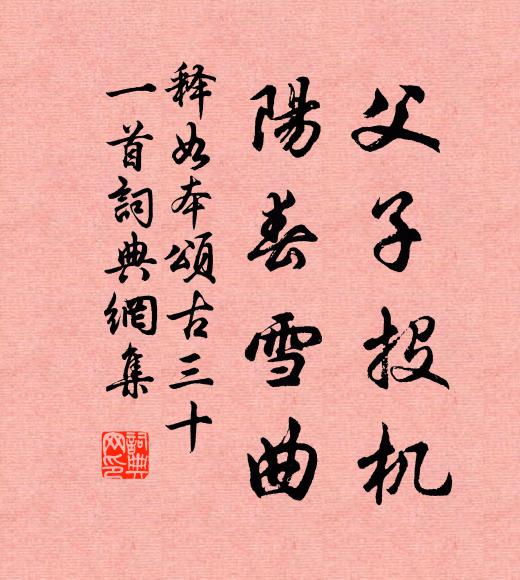 父子投机
陽春雪曲
释如本頌古三十
一首詞典網集
詞典
网印